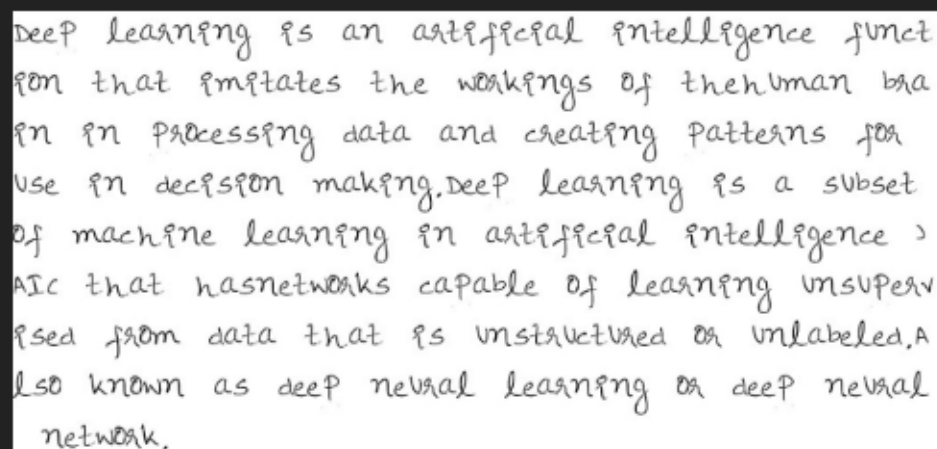 DeeP learning is an artificial intelligence funct
ion that imitates the workings of thehuman bra
in in Processing data and creating Patterns for
use in decision making.DeeP learning is a subset
of machine learning in artificial intelligence )
AIC that hasnetworks capable of learning unsuperv
ised from data that is unstructured or unlabeled.A
lso known as deep neural learning or deep neural
network.